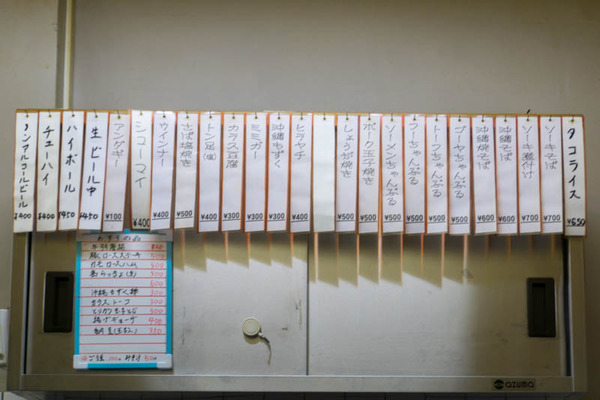 タコライス ¥650
ソーキそば ¥700
ソーキ煮付け ¥700
沖縄そば ¥600
沖縄焼そば ¥600
ゴーヤちゃんぷる ¥500
トーフちゃんぷる ¥500
フーちゃんぷる ¥500
ソーメンちゃんぷる ¥500
ポーク玉子焼き ¥500
しょうが焼き ¥500
ヒラヤチ ¥400
沖縄もずく ¥300
ミミガー ¥300
カラス豆腐 ¥300
トン足(塩) ¥400
さば塩焼き ¥500
ウインナー ¥400
シューマイ ¥400
アンダギー ¥100
生ビール中 ¥450
ハイボール ¥450
チューハイ ¥400
ノンアルコールビール ¥400
おすすめ品
島らっきょ(生)
沖縄もずく 300
揚げギョーザ 400
azuma